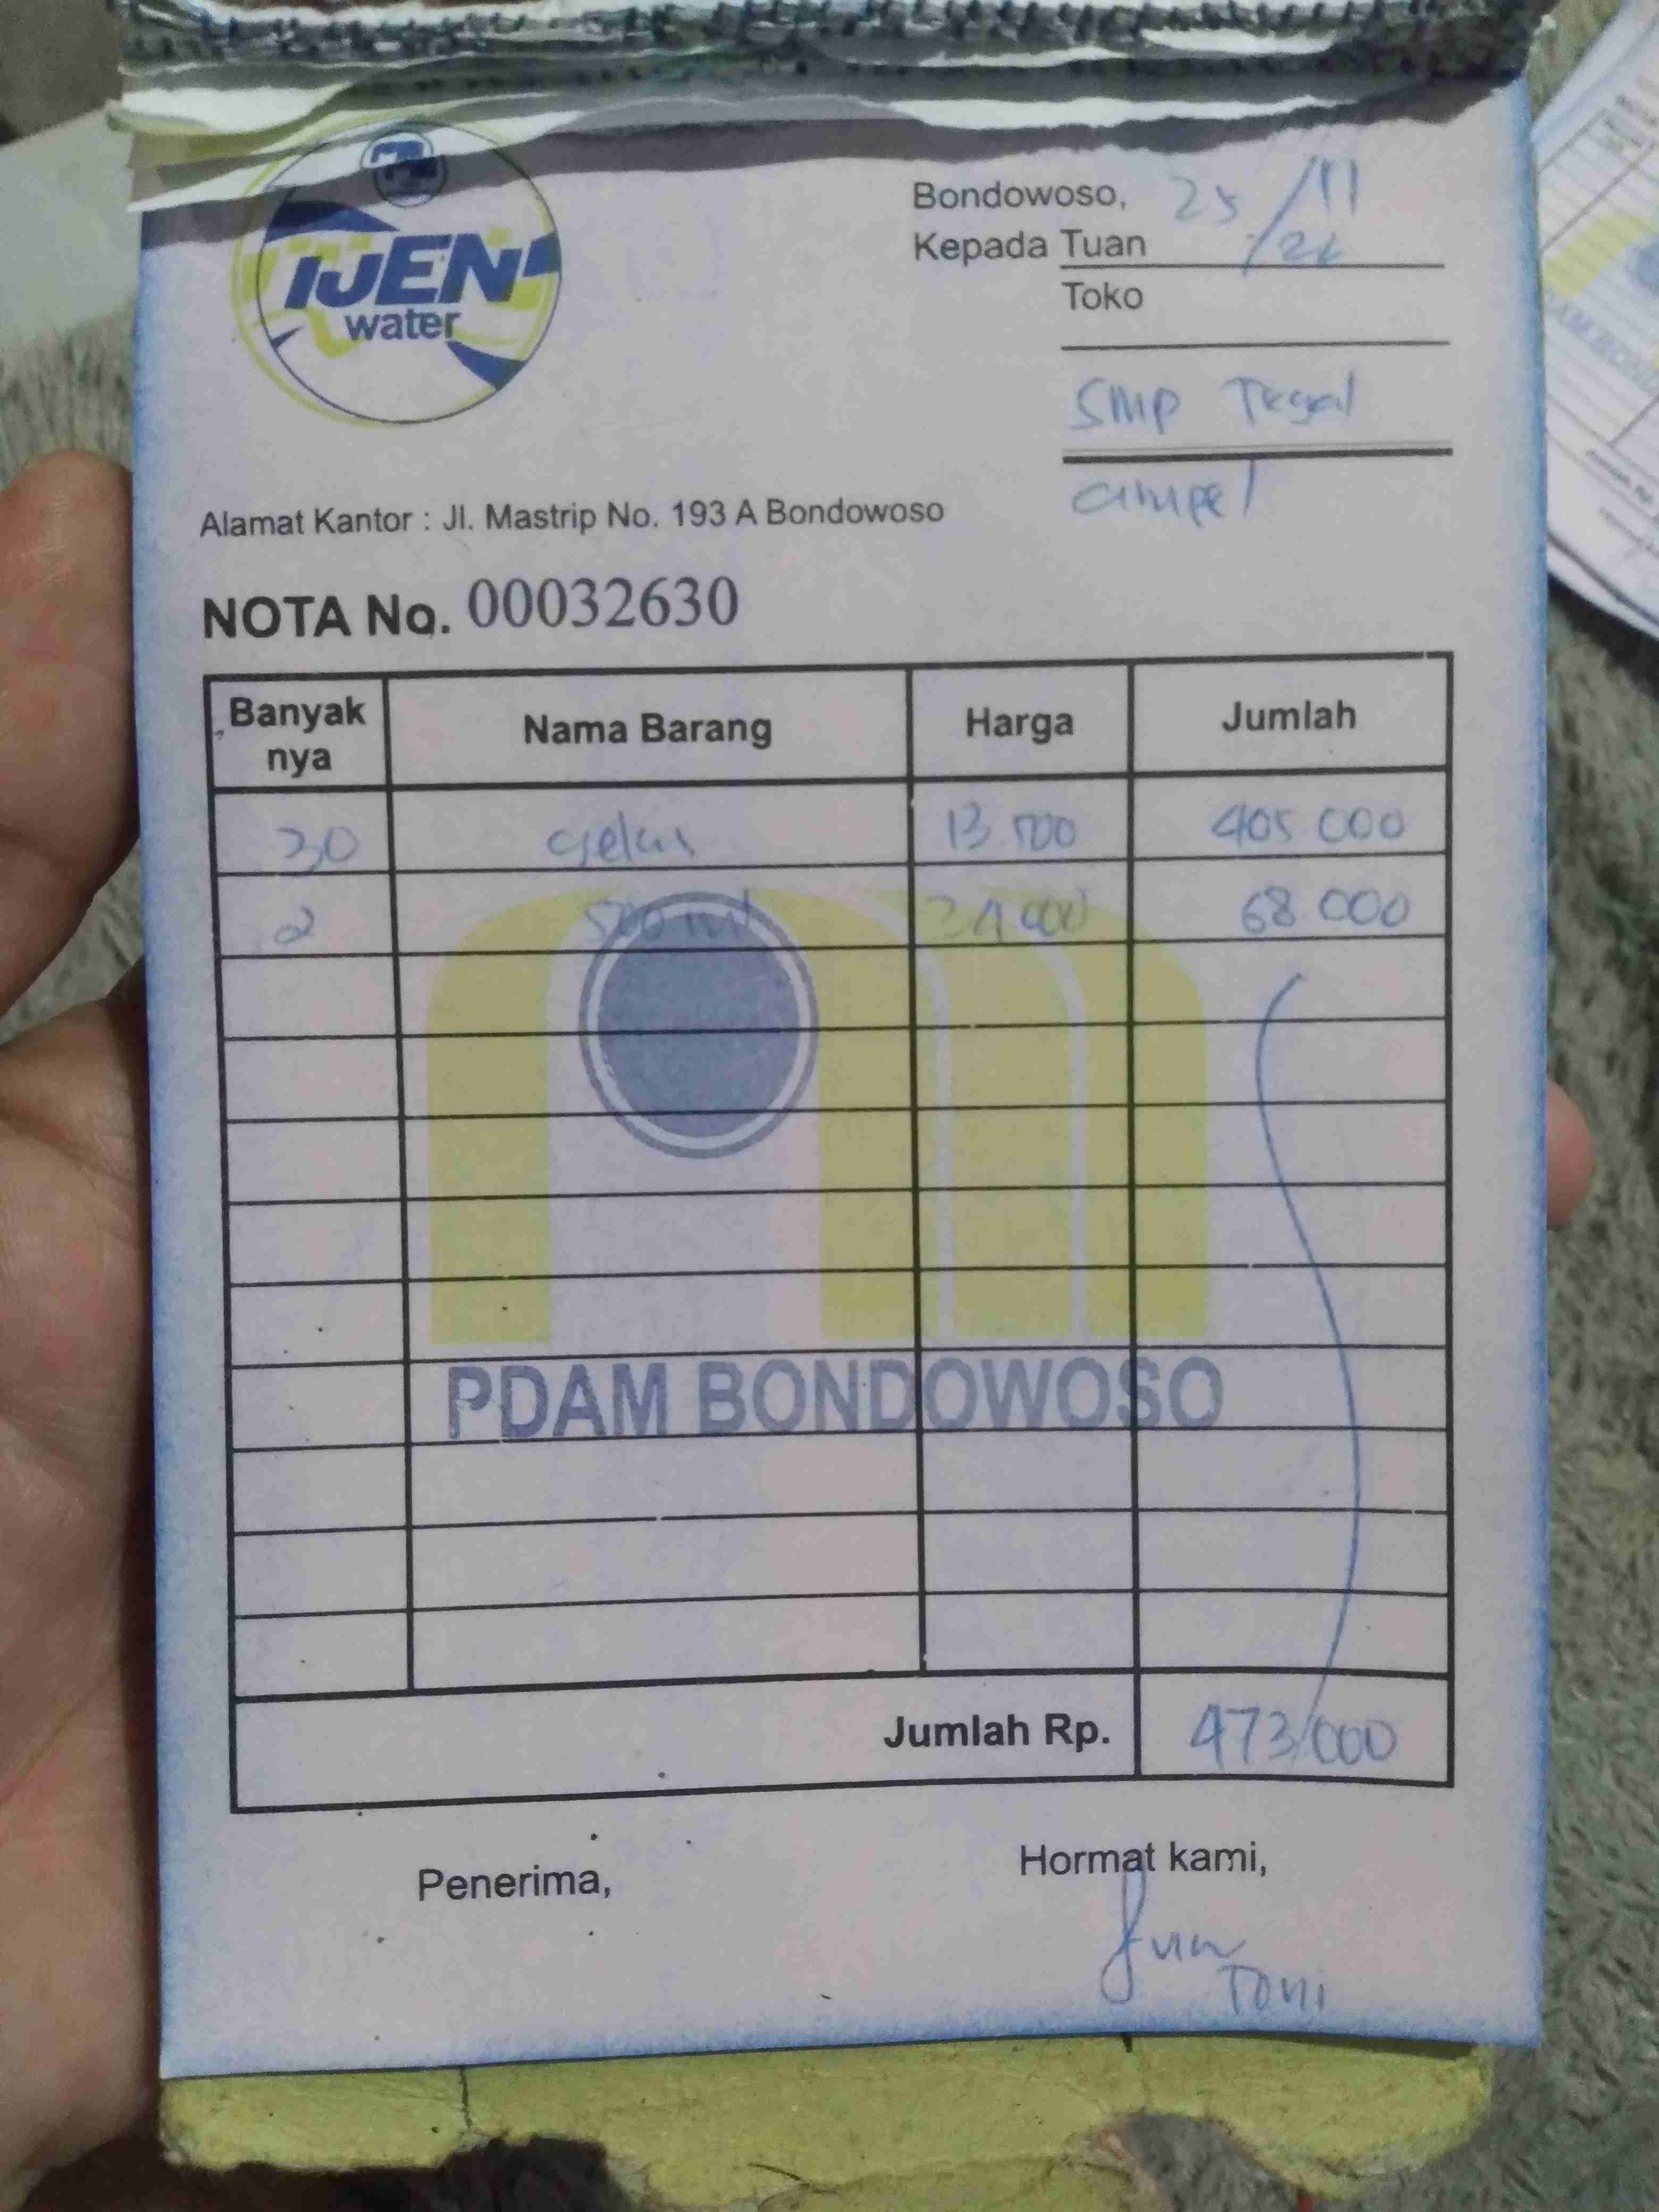 IJEN
water
Bondowoso, 25/11
Kepada Tuan
Toko
SMP Tegal
ampel
Alamat Kantor : Jl. Mastrip No. 193 A Bondowoso
NOTA No. 00032630
Banyak nya Nama Barang Harga Jumlah
30 gelas 13 500 405 000
2 500 ml 34 000 68 000
PDAM BONDOWOSO
Jumlah Rp. 473/000
Penerima, Hormat kami,
Toni